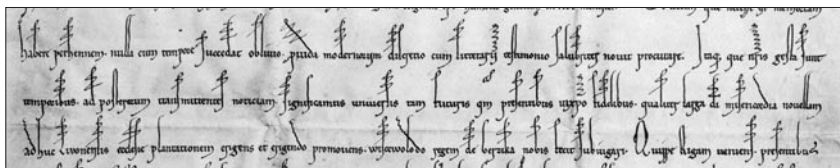 habere perhennem. nulla eum tempore succedat oblivio. provida modernorum dilectio eum litterarum testimonio salubriter novit procurare. Itaque que nostris gesta sunt
temporibus. ad posterorum transmittentes noticiam. significamus universis tam futuris quam presentibus Christi fidelibus. qualiter larga dei misericordia novellam
adhuc Livonensis ecclesie plantationem erigens et erigendo promovens. wiscewolodo regem de Gerzika nobis fecit subiugari. Quippe Rigam veniens. presentibus